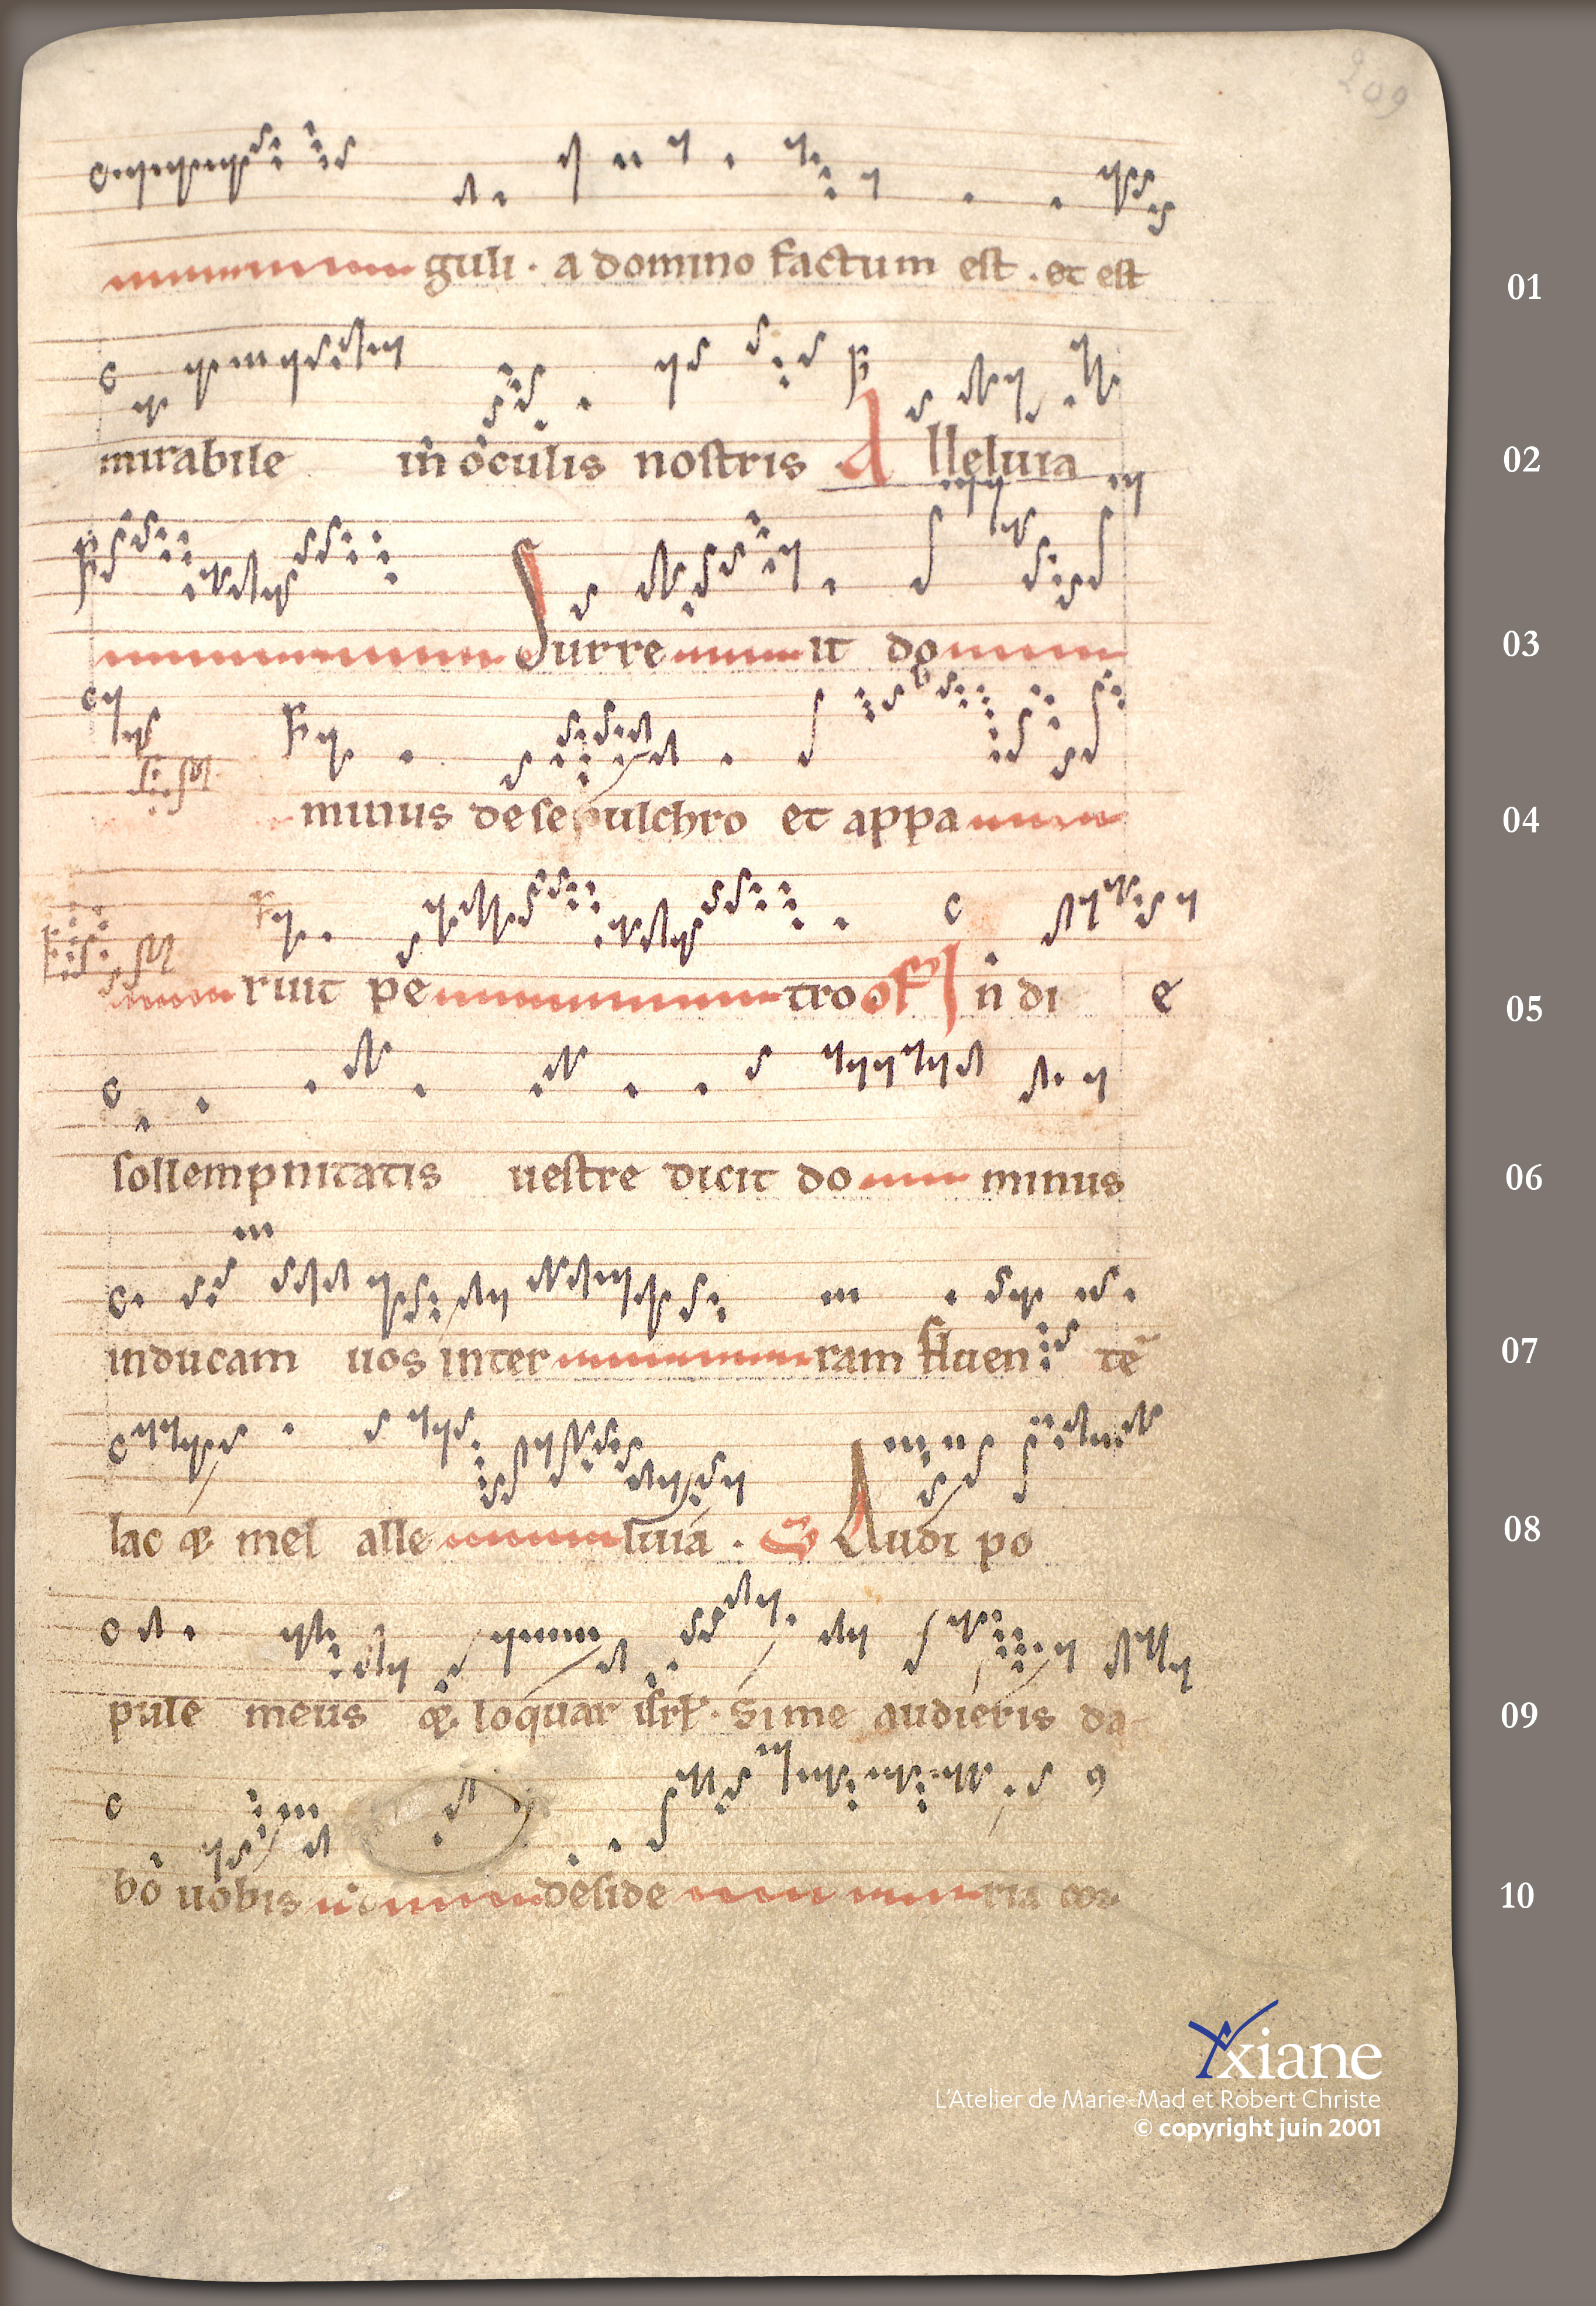 209
guli · a domino factum est . et est
01
mirabile in oculis nostris Alleluia
02
Surre it do
03
minus de sepulchro et appa
04
ruit pe tro of In di e
05
sollempnitatis uestre dicit do minus
06
inducam uos inter ram fluen tē
07
lac & mel alle luia . Audi po
08
pule meus & loquar isrl . Si me audieris da
09
bo uobis deside ria cor
10
Yxiane
L'Atelier de Marie-Mad et Robert Christe
© copyright juin 2001